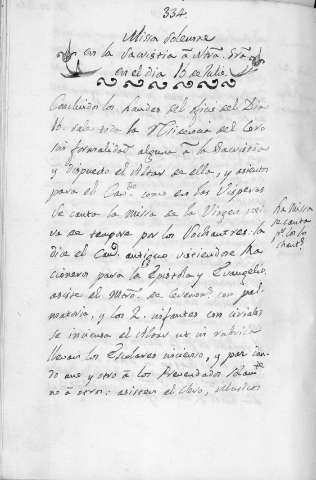 334
Missa solemne
en la Sacristia à Ntra. Sra.
en el dia 16 de Julio.
Concluidos los Laudes del Oficio del Dia
16. sale todo la Residencia del Coro
sin formalidad alguna à la Sacristia
y dispuesto el Altar de ella, y asientos
para el Cavdo. como en las Visperas
Se canta la Missa de la Virgen
va de tempore por los Sochantres: la
dice el Cano. antiguo vistiendose Ra
cioneros para la Epistola y Evangelio
asiste el Mtro. de Ceremos. con pal
matoria, y los 2. infantes con ciriales
se inciensa el Altar ut in rubrica
llevan los Escolares incienso, y paz
do uno y otro à los Prevendados solamte.
no à otros: asisten el Clero,
La Missa
se canta
pr. los So
chants.